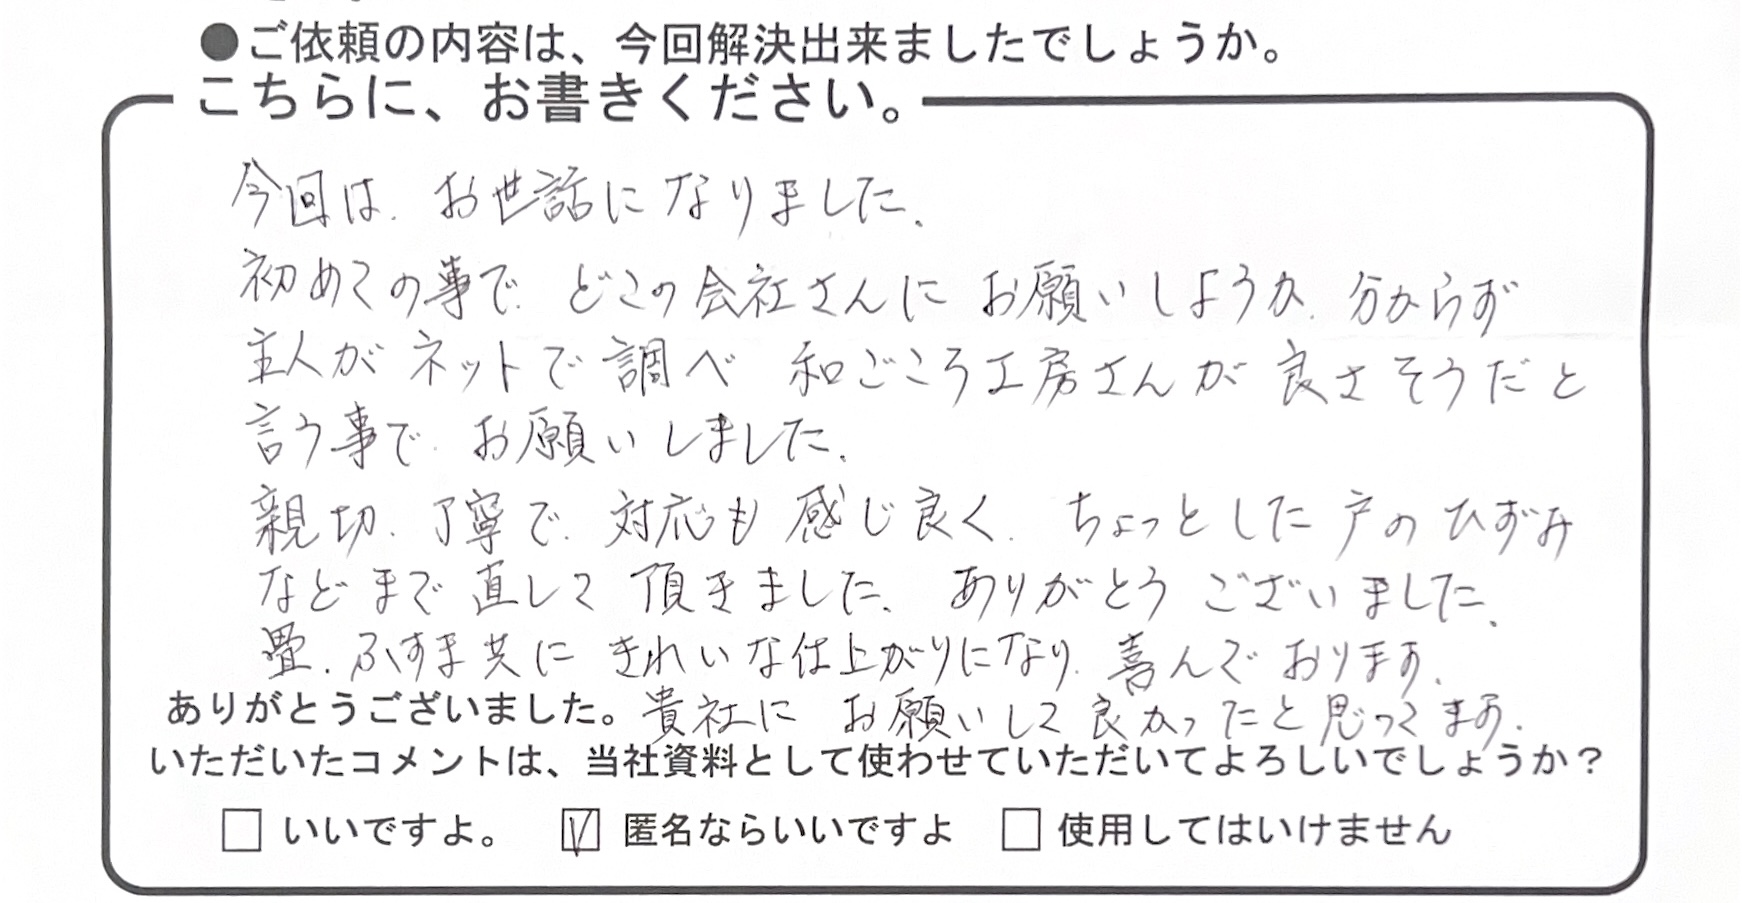 ●ご依頼の内容は、今回解決出来ましたでしょうか。
こちらに、お書きください。
今回は、お世話になりました。
初めての事で、どこの会社さんに お願いしようか、分からず
主人が ネットで 調べ 和ごころ工房さんが 良さそうだと
言う事で、お願いしました。
親切、丁寧で、対応も 感じ良く、ちょっとした 戸の ひずみ
などまで 直して 頂きました。ありがとう ございました。
畳、ふすま共に きれいな仕上がりになり、喜んで おります。
ありがとうございました。貴社に お願いして 良かったと思ってます。
いただいたコメントは、当社資料として使わせていただいてよろしいでしょうか？
□ いいですよ。 ☑ 匿名ならいいですよ □ 使用してはいけません